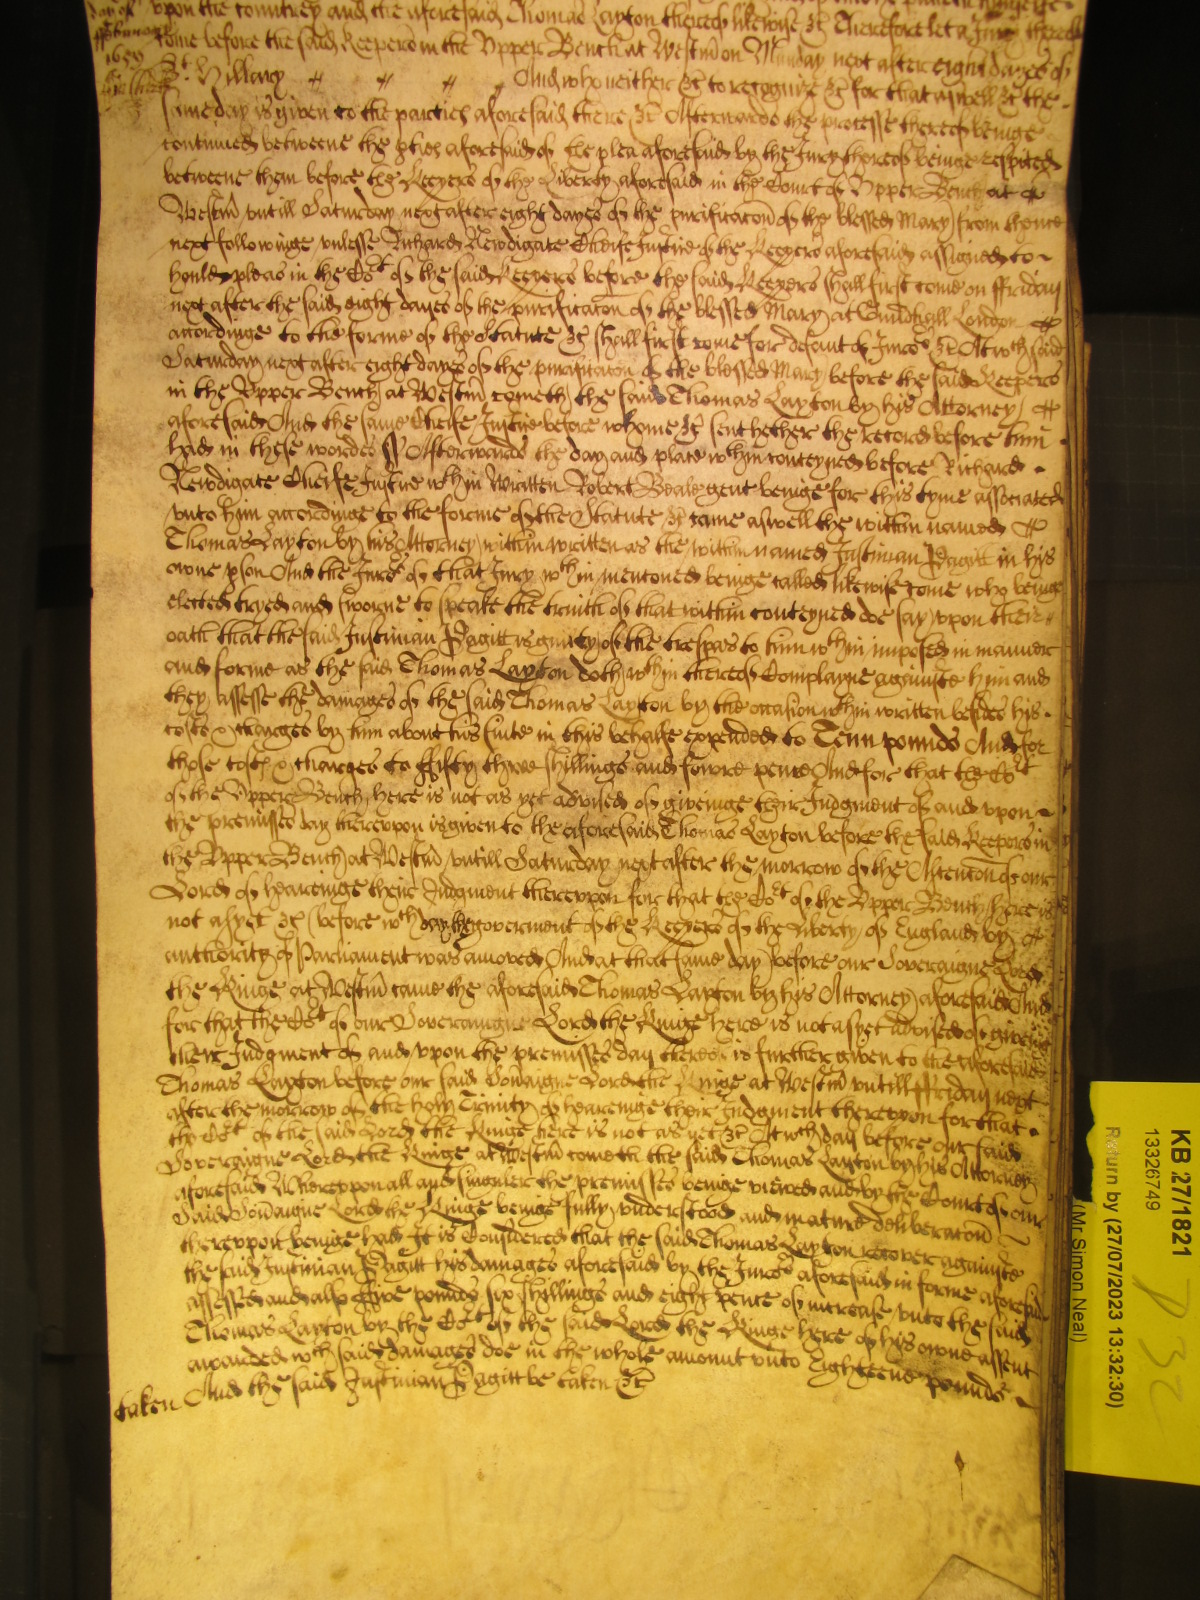 vpon the countrey and the aforesaid Thomas Layton thereof likewise &c Therefore let a Jury thereof
come before the said Keepers in the Vpper Bench at Westm on Munday next after eight dayes of
St. Hillary " " " " And who neither &c to recognize &c for that aswell &c the
same day is given to the parties aforesaid there &c Afterwards the processe thereof beinge
continued betweene the pties aforesaid of the plea aforesaid by the Jury thereof beinge respited
betweene them before the Keepers of the Liberty aforesaid in the Court of Vpper Bench at
Westm vntill Saturday next after eight dayes of the purificacon of the blessed Mary from thence
next followinge vnlesse Richard Newdigate Cheife Justice of the Keepers aforesaid assigned to
hould pleas in the Cort of the said Keepers before the said Keepers shall first come on ffriday
next after the said eight dayes of the purificacon of the blessed Mary at Guildhall London
accordinge to the forme of the Statute &c shall first come for defaut of Juros &c At wch said
Saturday next after eight dayes of the purificacon of the blessed Mary before the said Keepers
in the Vpper Bench at Westm cometh the said Thomas Layton by his Attorney
aforesaid And the same Cheife Justice before whome &c sent hether the record before him
had in these wordes ss Afterwards the day and place wthin conteyned before Richard
Newdigate Cheife Justice wthin written Robert Beale gent beinge for this tyme associated
vnto him accordinge to the forme of the Statute &c came aswell the within named
Thomas Layton by his Attorney within written as the within named Justinian Pagitt in his
owne pson And the Juros of that Jury wthin mentoned beinge called likewise come who beinge
elected tryed and sworne to speake the truith of that within conteyned doe say vpon their
oath that the said Justinian Pagitt is guilty of the trespas to him wthin imposed in manner
and forme as the said Thomas Layton doth wthin thereof Complayne againste him and
they assesse the damages of the said Thomas Layton by the occasion wthin written besides his
costs & charges by him about his suite in this behalfe expended to Tenn pounds And for
those costs & charges to ffifty three shillings and fowre pence And for that the Cort
of the Vpper Bench here is not as yet advised of giveinge their Judgment of and vpon
the premisses day therevpon is given to the aforesaid Thomas Layton before the said Keepers in
the Vpper Bench at Westm vntill Saturday next after the morrow of the Ascention of our
Lord of heareinge their Judgment therevpon for that the Cort of the Vpper Bench here is
not as yet &c (before wch day the goverment of the Keepers of the Liberty of England by
authority of Parliament was amoved And at that same day before our Soveraigne Lord
the Kinge at Westm came the aforesaid Thomas Layton by his Attorney aforesaid And
for that the Cort of our Soveraigne Lord the Kinge here is not as yet advised of giveinge
their Judgment of and vpon the premisses day thereof is further given to the aforesaid
Thomas Layton before our said Soveraigne Lord the Kinge at Westm vntill ffriday next
after the morrow of the holy Trinity of heareinge their Judgment therevpon for that
the Cort of the said Lord the Kinge here is not as yet &c At wch day before our said
Soveraigne Lord the Kinge at Westm cometh the said Thomas Layton by his Attorney
aforesaid Wherevpon all and singuler the premisses beinge viewed and by the Court of our
said Soveraigne Lord the Kinge beinge fully vnderstood and mature deliberacon
therevpon beinge had It is Considered that the said Thomas Layton recover againste
the said Justinian Pagitt his damages aforesaid by the Juros aforesaid in forme aforesaid
assessed and also ffive pounds six shillings and eight pence of increase vnto the said
Thomas Layton by the Cort of the said Lord the Kinge here of his owne assent
awarded wch said damages doe in the whole amount vnto Eighteene pounds
taken And the said Justinian Pagitt be taken &c
day of
1659
KB 271/1821
13326749
Return by (27/07/2023 13:32:30)
(Mr Simon Neal)